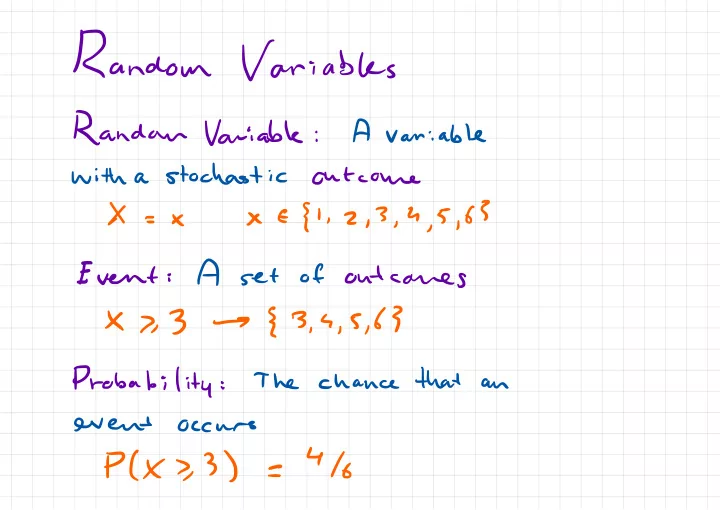 Random Variables
Random Variable: A variable
with a stochastic outcome
X = x x ∈ {1, 2, 3, 4, 5, 6}
Event: A set of outcomes
X ⩾ 3 → { 3, 4, 5, 6}
Probability: The chance that an
event occurs
P(X ⩾ 3) = 4/6